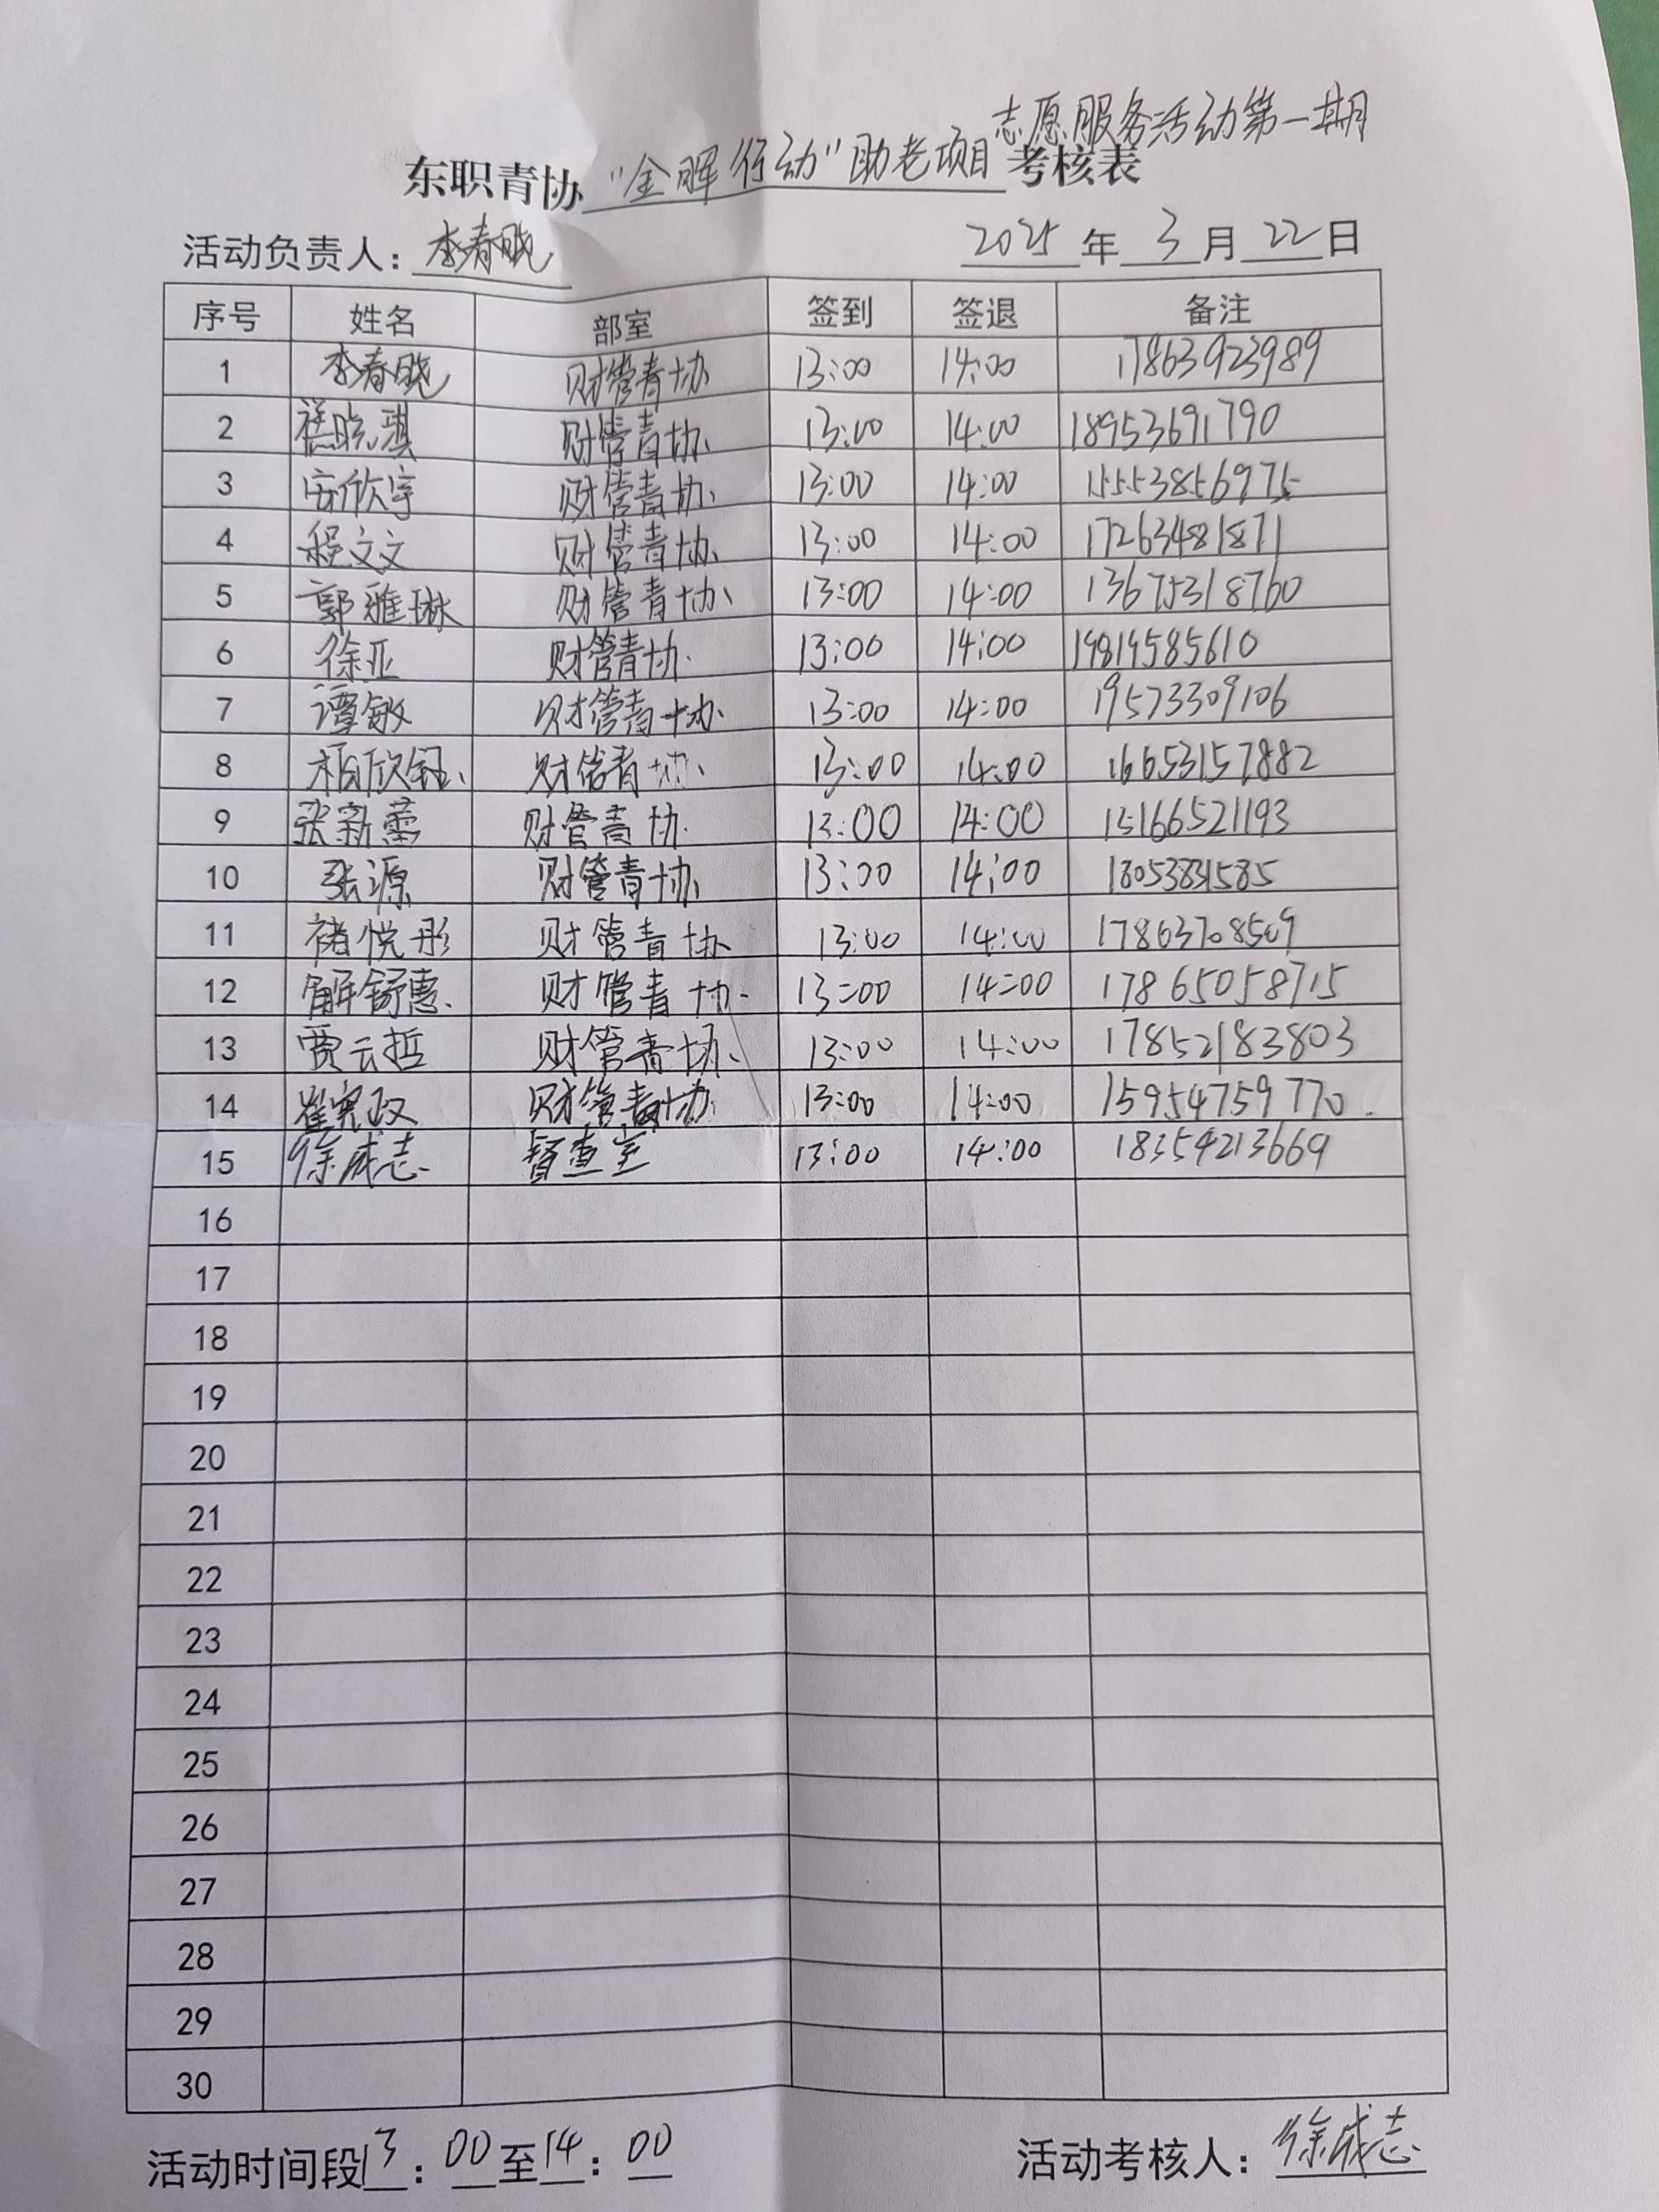 志愿服务活动第一期
东职青协 "金晖行动"助老项目 考核表
活动负责人：李春晓 2025 年 3 月 22 日
序号 姓名 部室 签到 签退 备注
1 李春晓 财管青协 13:00 14:00 17863923989
2 晓琪 财管青协 13:00 14:00 18953691790
3 安欣宇 财管青协 13:00 14:00 15553856975
4 程文文 财管青协 13:00 14:00 17263481871
5 郭雅琳 财管青协 13:00 14:00 13675318760
6 徐亚 财管青协 13:00 14:00 19819585610
7 谭敏 财管青协 13:00 14:00 19573309106
8 柏欣钰 财管青协 13:00 14:00 16653157882
9 张新蕾 财管青协 13:00 14:00 15166521193
10 张源 财管青协 13:00 14:00
11 褚悦彤 财管青协 13:00 14:00 17863708509
12 解舒惠 财管青协 13:00 14:00 17865058715
13 贾云哲 财管青协 13:00 14:00 17852183803
14 崔宪政 财管青协 13:00 14:00 15954759770
15 徐成志 督查室 13:00 14:00 18354213669
16
17
18
19
20
21
22
23
24
25
26
27
28
29
30
活动时间段13：00至14：00 活动考核人：徐成志